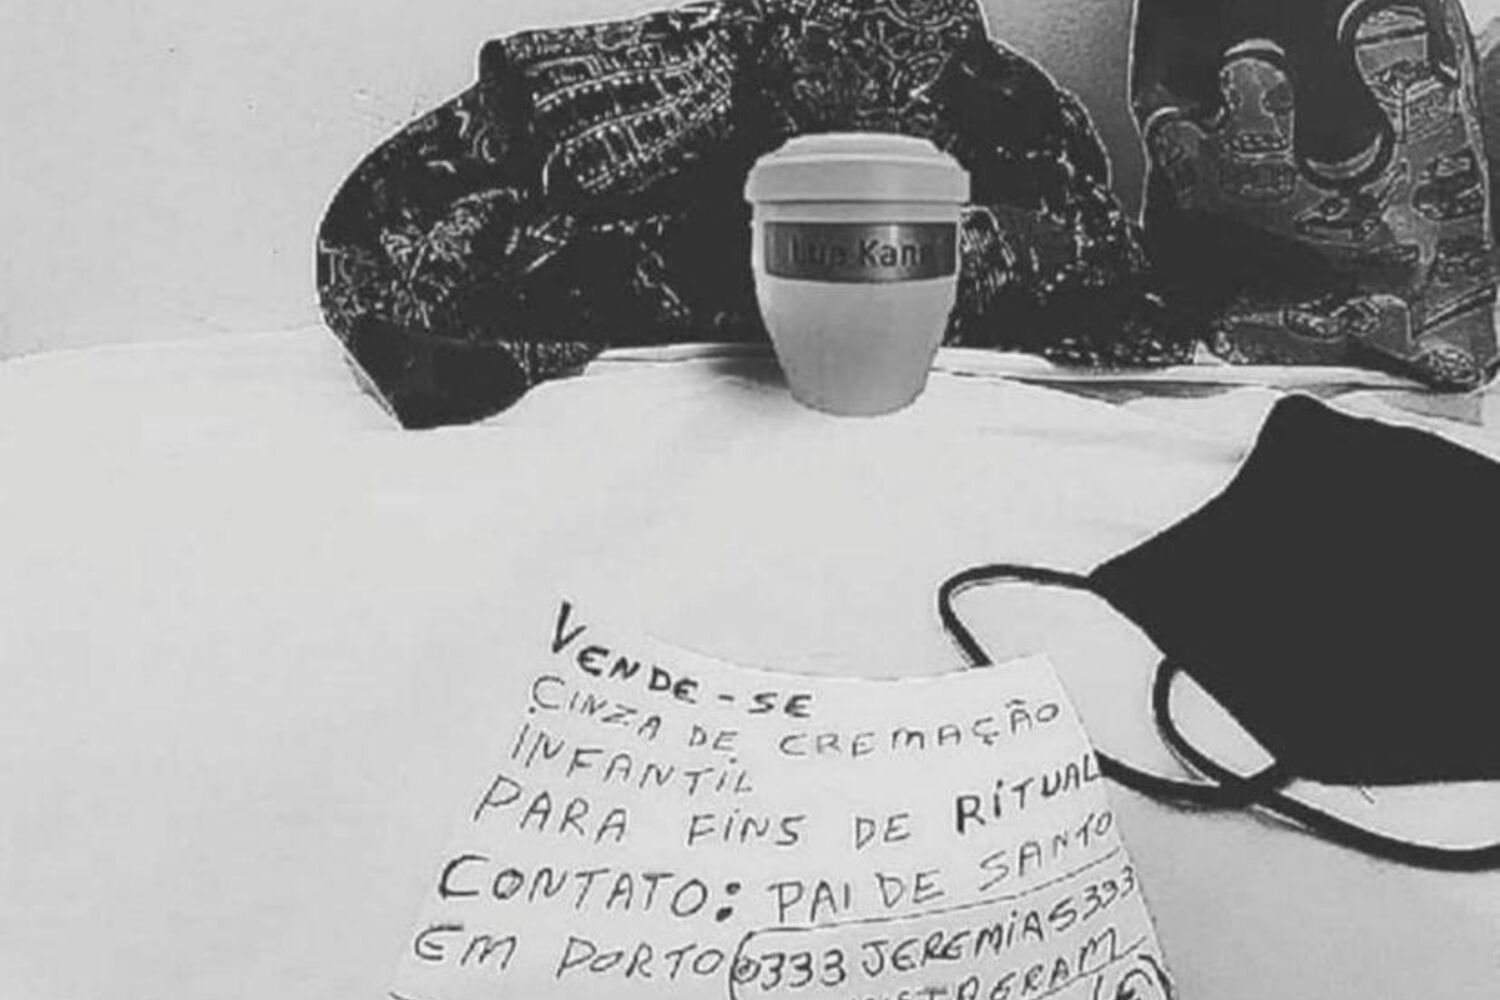 Lua Kann
VENDE-SE
CINZA DE CREMAÇÃO
INFANTIL
PARA FINS DE RITUAL
CONTATO: PAI DE SANTO
EM PORTO @333 JEREMIAS333